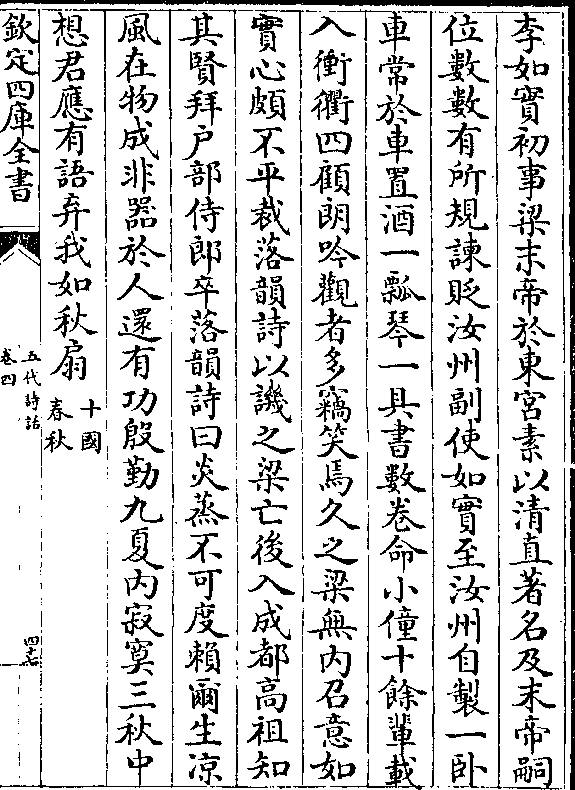 李如實初事梁末帝於東宫素以清直著名及末帝嗣
位數數有所規諫貶汝州副使如實至汝州自製一卧
車常於車置酒一瓢琴一具書數卷命小僮十餘輩載
入衝衢四顧朗吟觀者多竊笑焉久之梁無内召意如
實心頗不平裁落韻詩以譏之梁亡後入成都高祖知
其賢拜户部侍郎卒落韻詩曰炎蒸不可度賴爾生凉
風在物成非器於人還有功殷勤九夏内寂寞三秋中
想君應有語弃我如秋扇
十國
春秋
欽定四庫全書
五代詩話
卷四
四十七